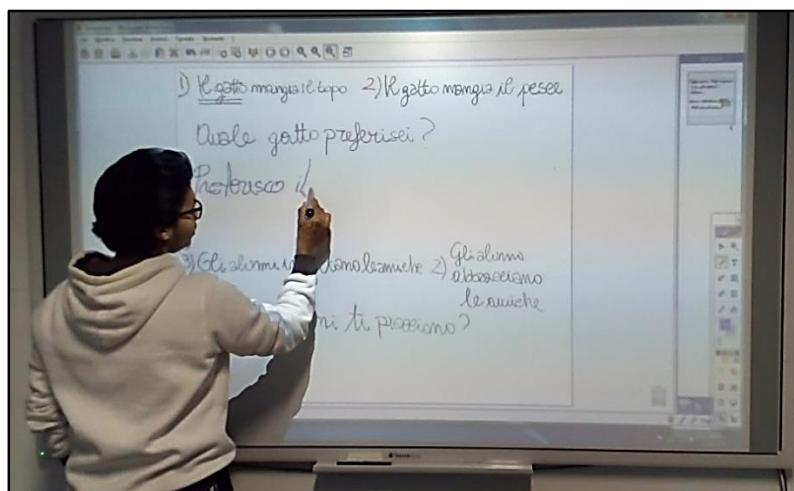 1) Il gatto mangia il topo 2) Il gatto mangia il pesce
Quale gatto preferisci?
Preferisco il
3) Gli alunni leamiche 2) Gli alunno
abbracciano
le amiche
ni ti piacciono?